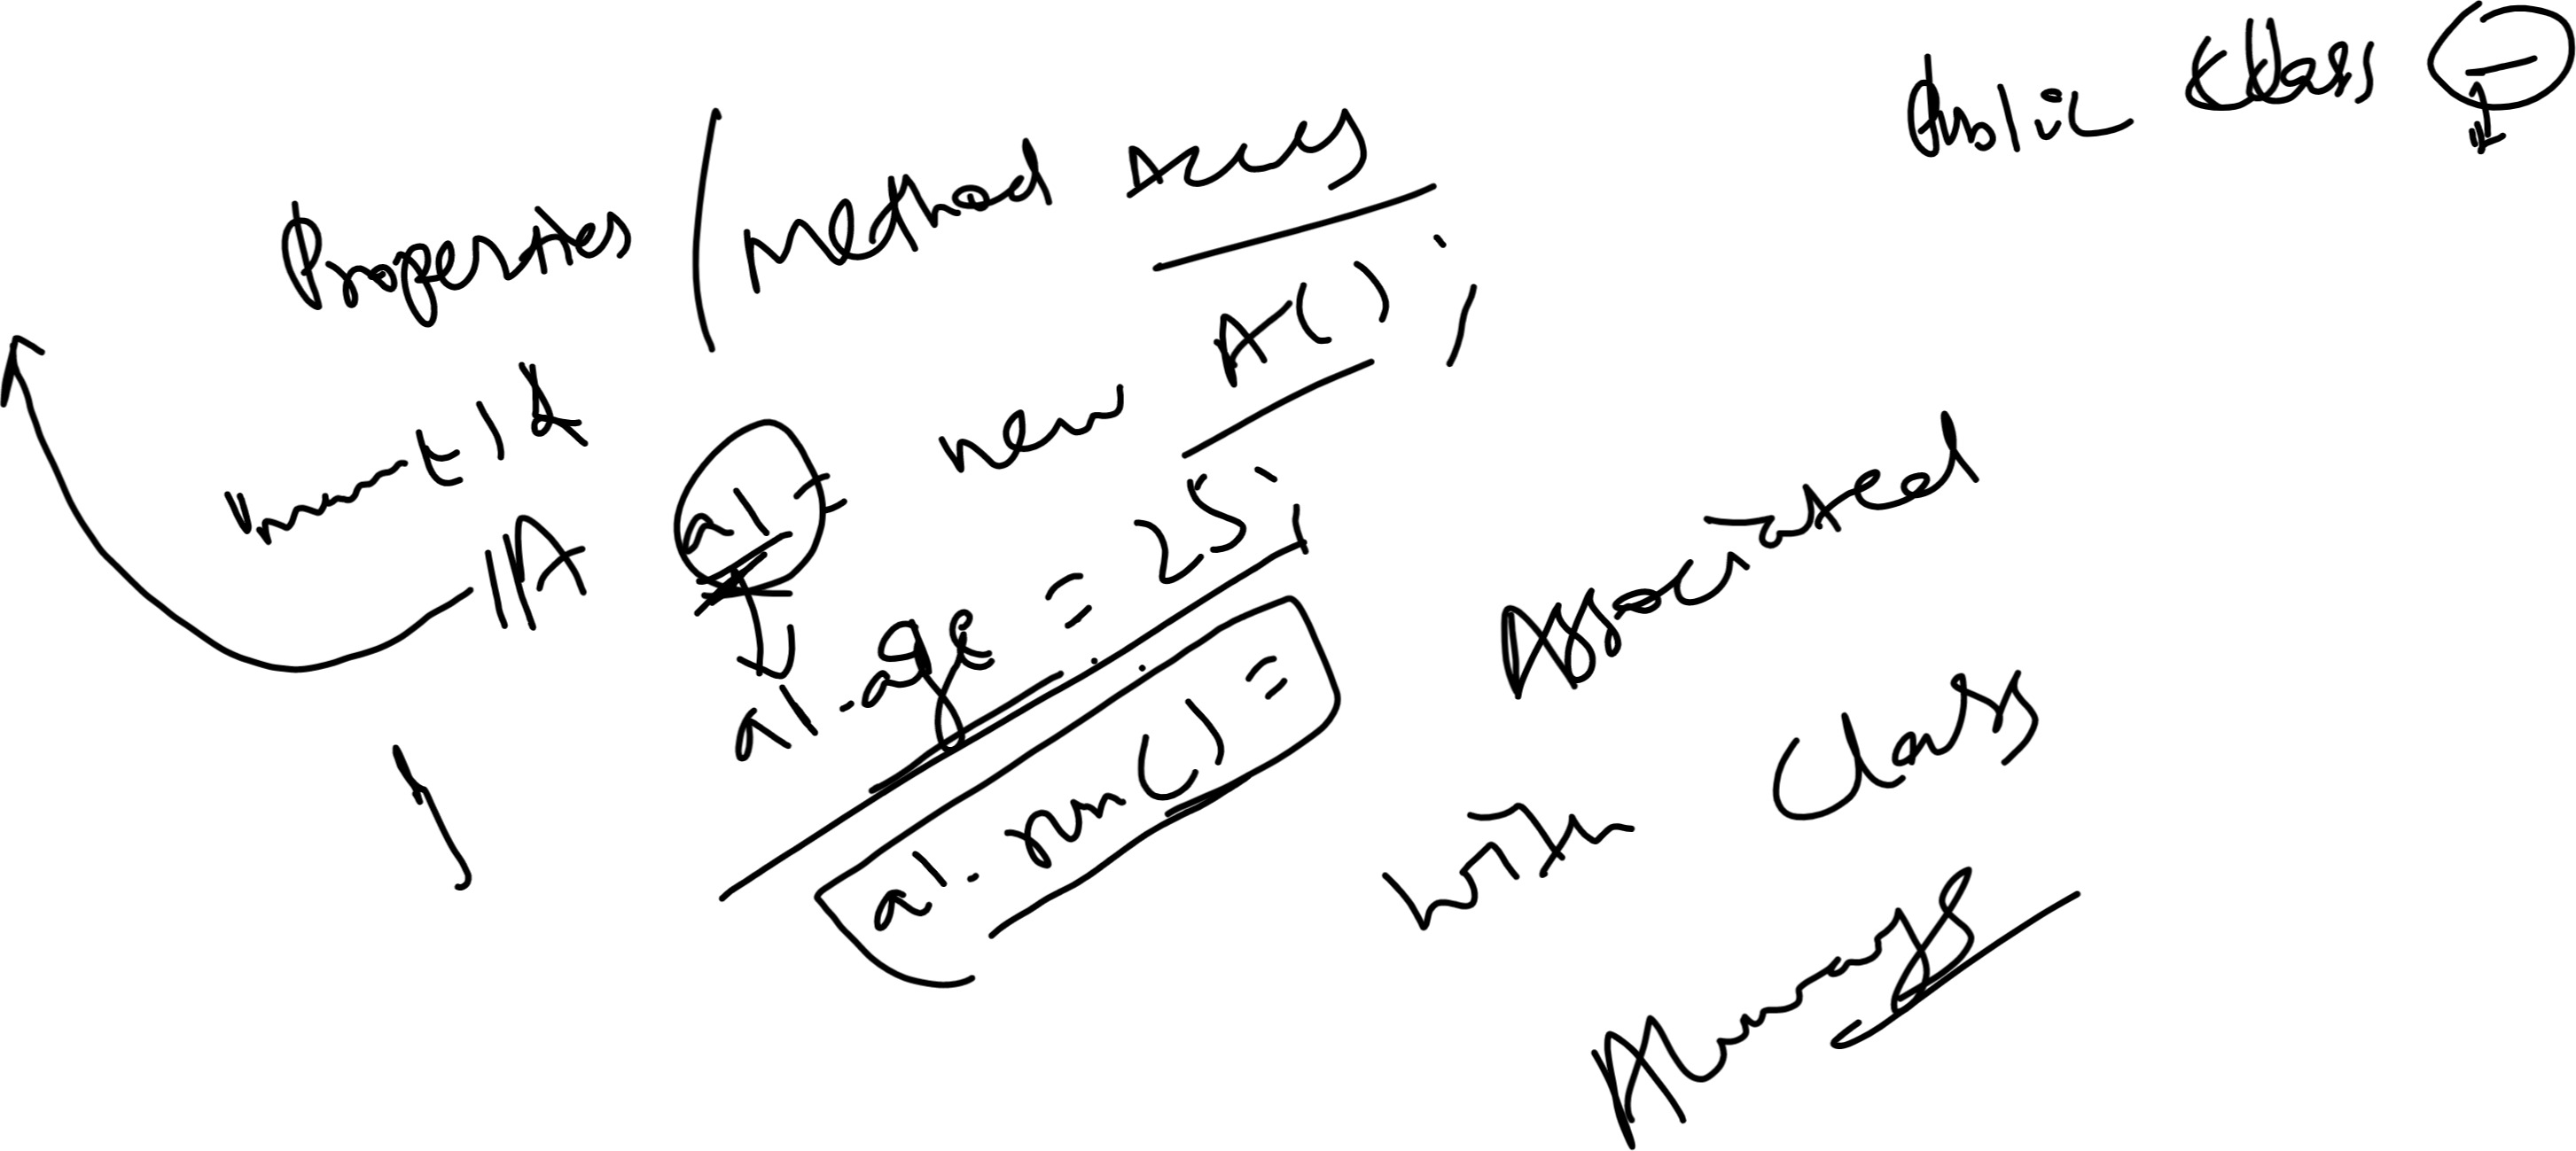 Public Class
Properties / Method Access
A a1 = new A();
a1.age = 25;
a1.run()
Associated
with Class
Always